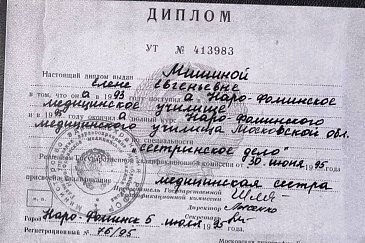 ДИПЛОМ
УТ № 413983
Настоящий диплом выдан Мишиной
Елене Евгеньевне
в том, что она в 1993 году поступила в Наро-Фоминское
медицинское училище
и в 1995 окончила полный Наро-Фоминского
медицинского училища Московской обл.
"сестринское дело"
Решением Государственной квалификационной комиссии от 30 июня 1995
присвоена квалификация медицинская сестра
Председатель Государственной
квалификационной комиссии
Директор
Секретарь
Город Наро-Фоминск 5 июля 1995
Регистрационный № 76/95
Московская